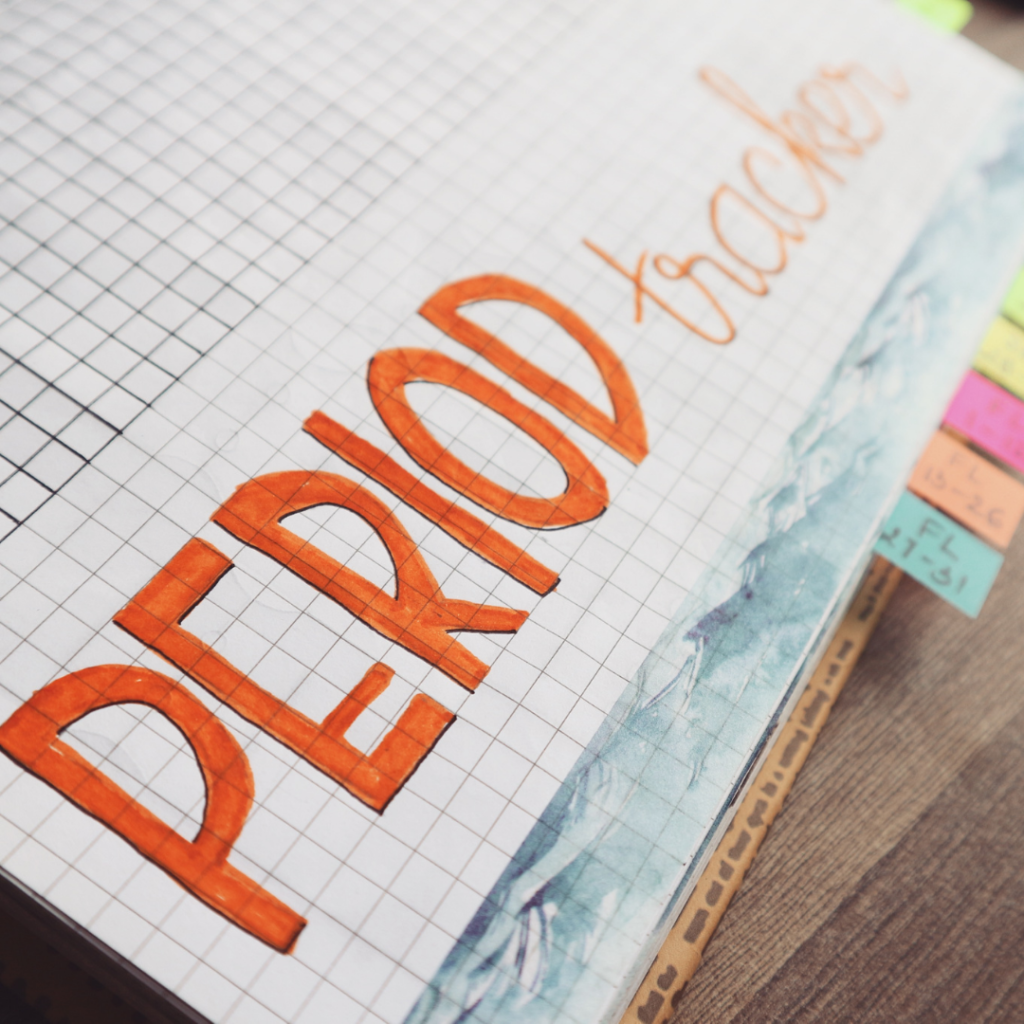 PERIOD tracker
FL
15-26
FL
27-31